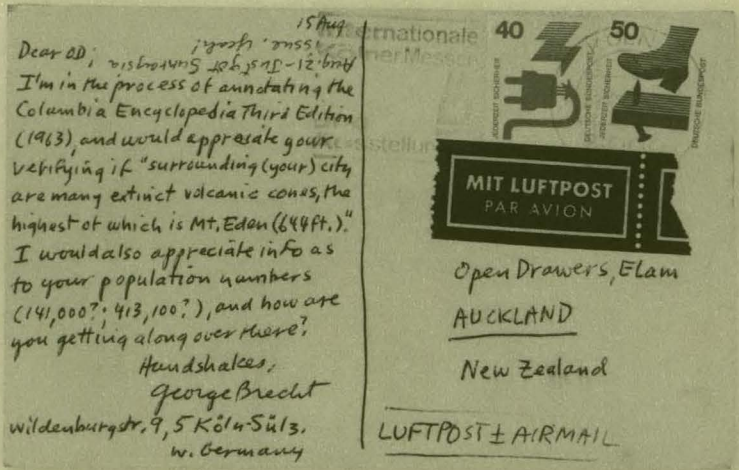 15 Aug
Dear OD:
Aug. 21 - Just got Sunraysia
issue, yeah!
I'm in the process of annotating the
Columbia Encyclopedia Third Edition
(1963), and would appreciate your
verifying if "surrounding (your) city
are many extinct volcanic cones, the
highest of which is Mt. Eden (644 ft.)."
I would also appreciate info as
to your population numbers
(141,000?; 413,100?), and how are
you getting along over there?
Handshakes,
George Brecht
Wildenburgstr. 9, 5 Köln-Sülz.
W. Germany
Internationale
Kölner Messe
40
JEDERZEIT SICHERHEIT
DEUTSCHE BUNDESPOST
50
JEDERZEIT SICHERHEIT
DEUTSCHE BUNDESPOST
MIT LUFTPOST
PAR AVION
Open Drawers, Elam
AUCKLAND
New Zealand
LUFTPOST ± AIRMAIL